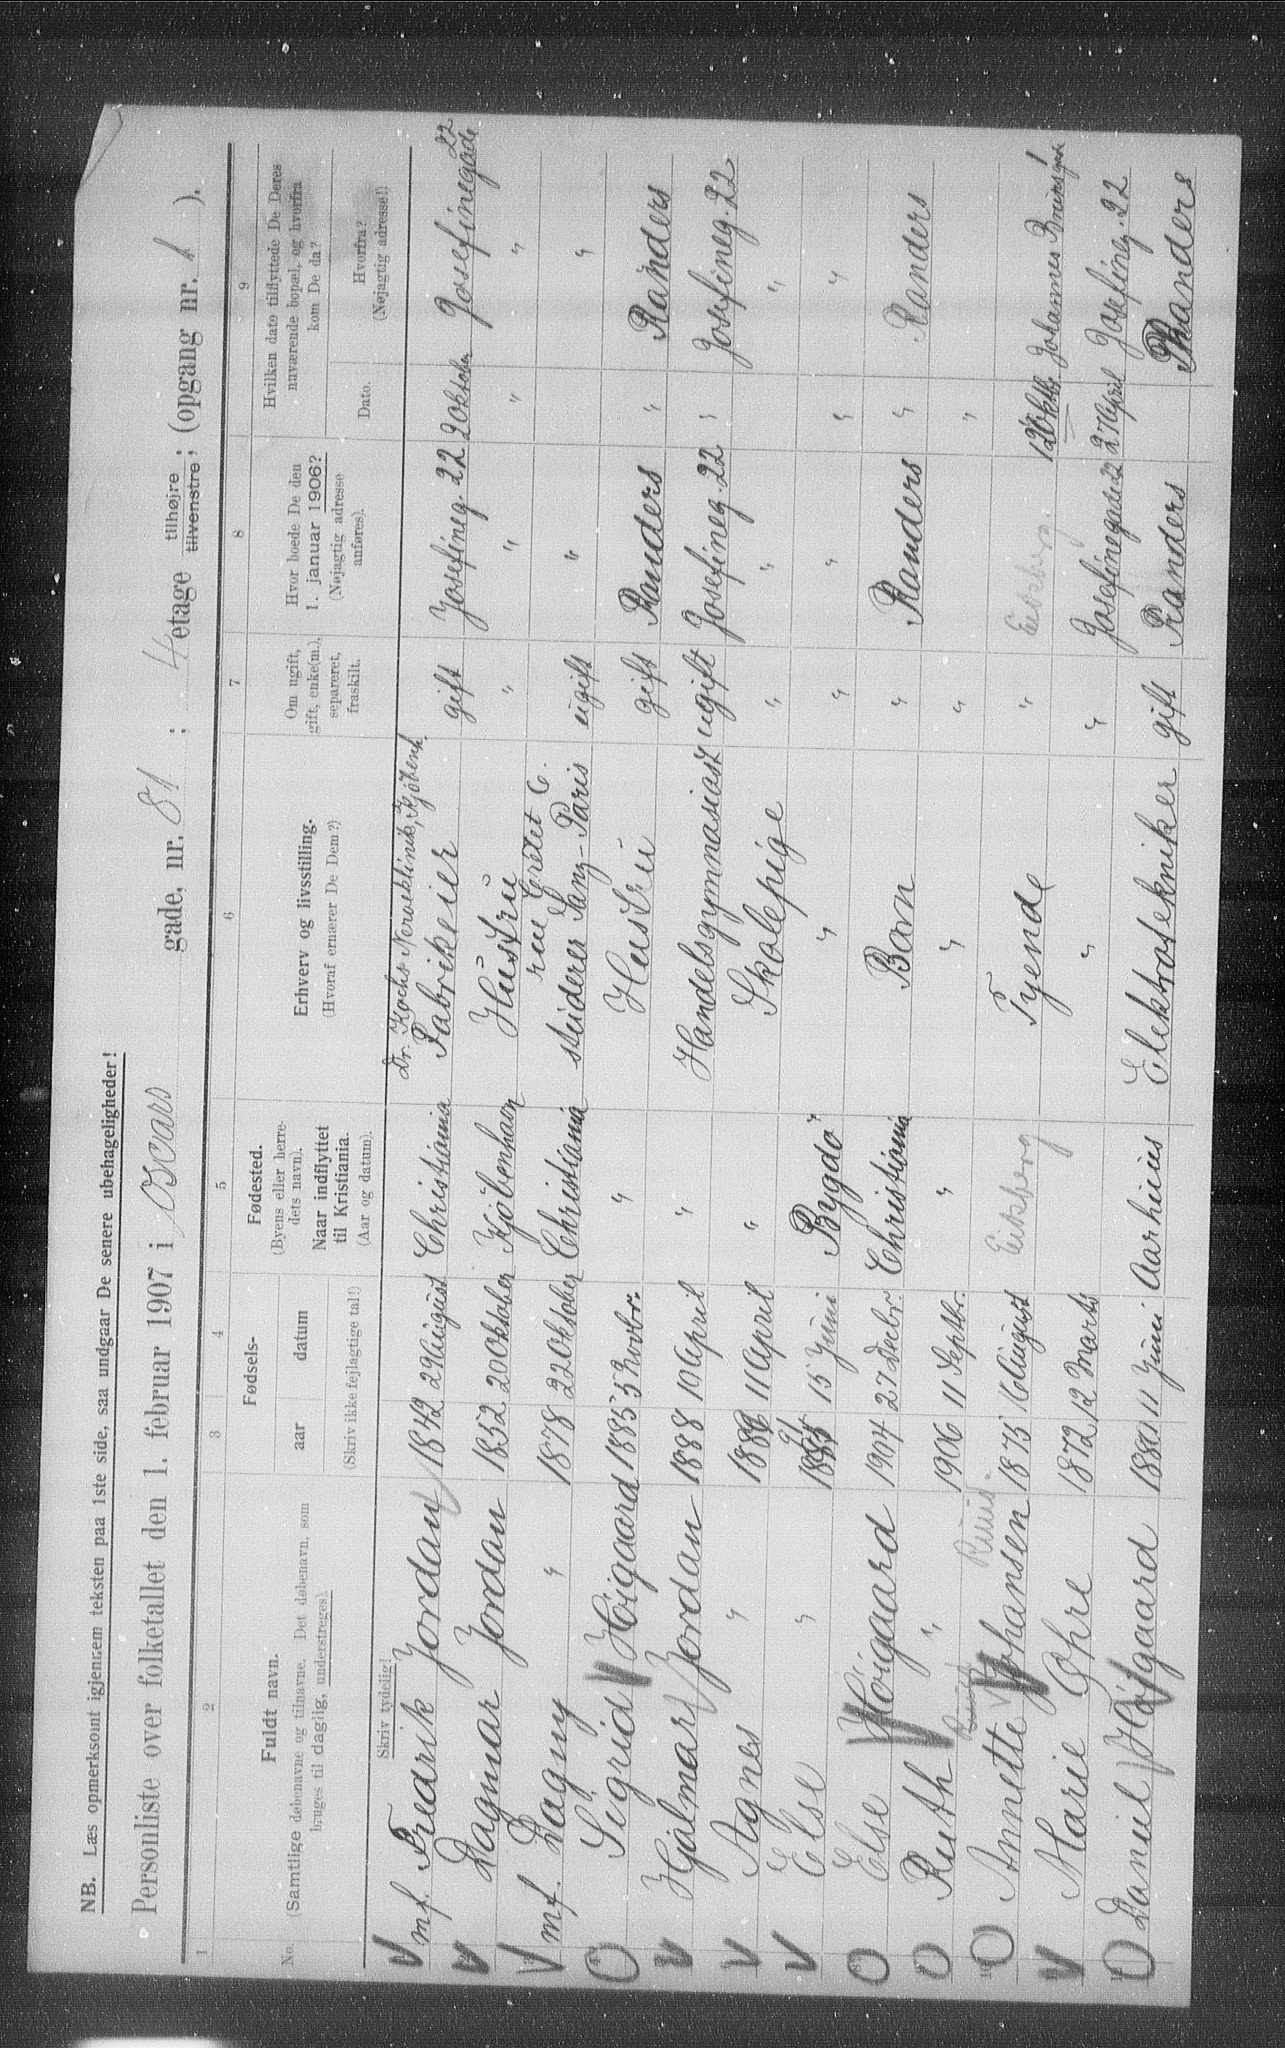 NB. Læs opmerksomt igjennem teksten paa 1ste side, saa undgaar De senere ubehageligheder!
Personliste over folketallet den 1. februar 1907 i Oscars gade, nr. 81 ; 4 etage tilhøjre tilvenstre ; (opgang nr. 1 ).
1 2 3 4 5 6 7 8 9
No. Fuldt navn. (Samtlige døbenavne og tilnavne. Det døbenavn, som bruges til daglig, understreges).
Fødsels- aar datum
(Skriv ikke fejlagtige tal!)
Fødested. (Byens eller herredets navn). Naar indflyttet til Kristiania. (Aar og datum).
Erhverv og livsstilling. (Hvoraf ernærer De Dem?)
Om ugift, gift, enke(m.), separeret, fraskilt.
Hvor boede De den 1. januar 1906? (Nøjagtig adresse anføres).
Hvilken dato tilflyttede De Deres nuværende bopæl, og hvorfra kom De da?
Dato. Hvorfra? (Nøjagtig adresse!)
Skriv tydelig!
Dr. Kochs Nerveklinik, Kjøbenh.
mf. Fredrik Jordan 1842 29 August Christiania Fabrikeier gift Josefineg. 22 2 Oktober Josefinegade 22
Dagmar Jordan 1852 20 Oktober Kjøbenhavn Hustru " " " "
rue Grétet 6.
mf. Dagny " 1878 22 Oktober Christiania studerer Sang - Paris ugift " "
Sigrid Høigaard 1883 3 Novbr. " Hustru gift Randers " Randers
Hjalmar Jordan 1888 10 April " Handelsgymnasiast ugift Josefineg. 22 " Josefineg. 22
Agnes " 11 April " Skolepige " " "
Else " 15 Juni Bygdø " " " " "
Else Høigaard 1904 27 Decbr. Christiania Barn " Randers " Randers
Ruth " 1906 11 Septbr. " " " "
Ruud.
Annette Johansen 1875 16 August Eidsberg Tyende " Eidsberg. Johannes Brunsgade 1
Marie Gohre 1872 12 Marts " " Josefinegade 22 27 April Josefineg. 22
Daniel Højgaard 1880 11 Juni Aarhuus Elektrotekniker gift Randers Randers